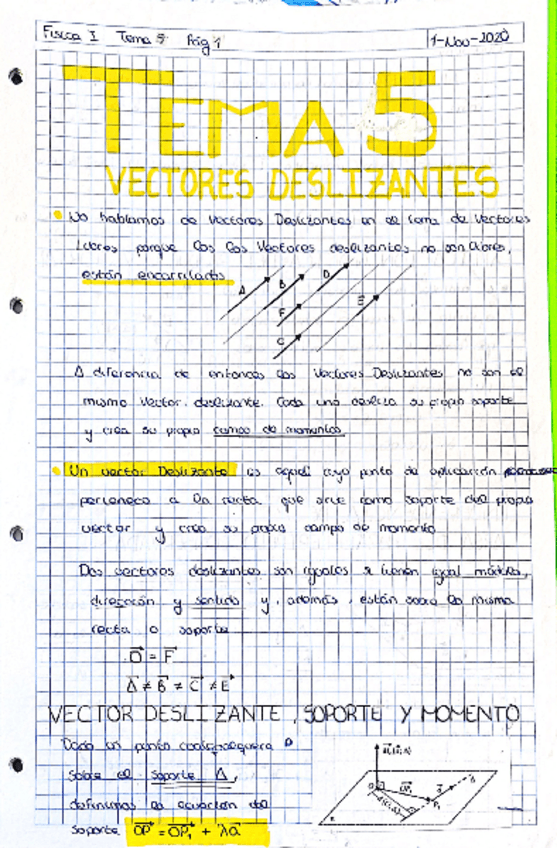 Física I Tema 5 Pág 1 1-Nov-2020
TEMA 5
VECTORES DESLIZANTES
No hablamos de Vectores Deslizantes en el tema de Vectores
Libres porque los Vectores deslizantes no son libres,
están encarrilados
A B D
F E
C
A diferencia de entonces los Vectores Deslizantes no son el
mismo vector deslizante. Cada uno desliza su propio soporte
y crea su propio campo de momentos
Un vector Deslizante es aquel cuyo punto de aplicación
pertenece a la recta que sirve como soporte del propio
vector y crea su propio campo de momento
Dos vectores deslizantes son iguales si tienen igual módulo,
dirección y sentido y, además, están sobre la misma
recta o soporte
D = F
A ≠ B ≠ C ≠ E
VECTOR DESLIZANTE, SOPORTE Y MOMENTO
Dado un punto P
sobre el soporte Δ,
definimos la ecuación del
soporte OP = OP₁ + λa